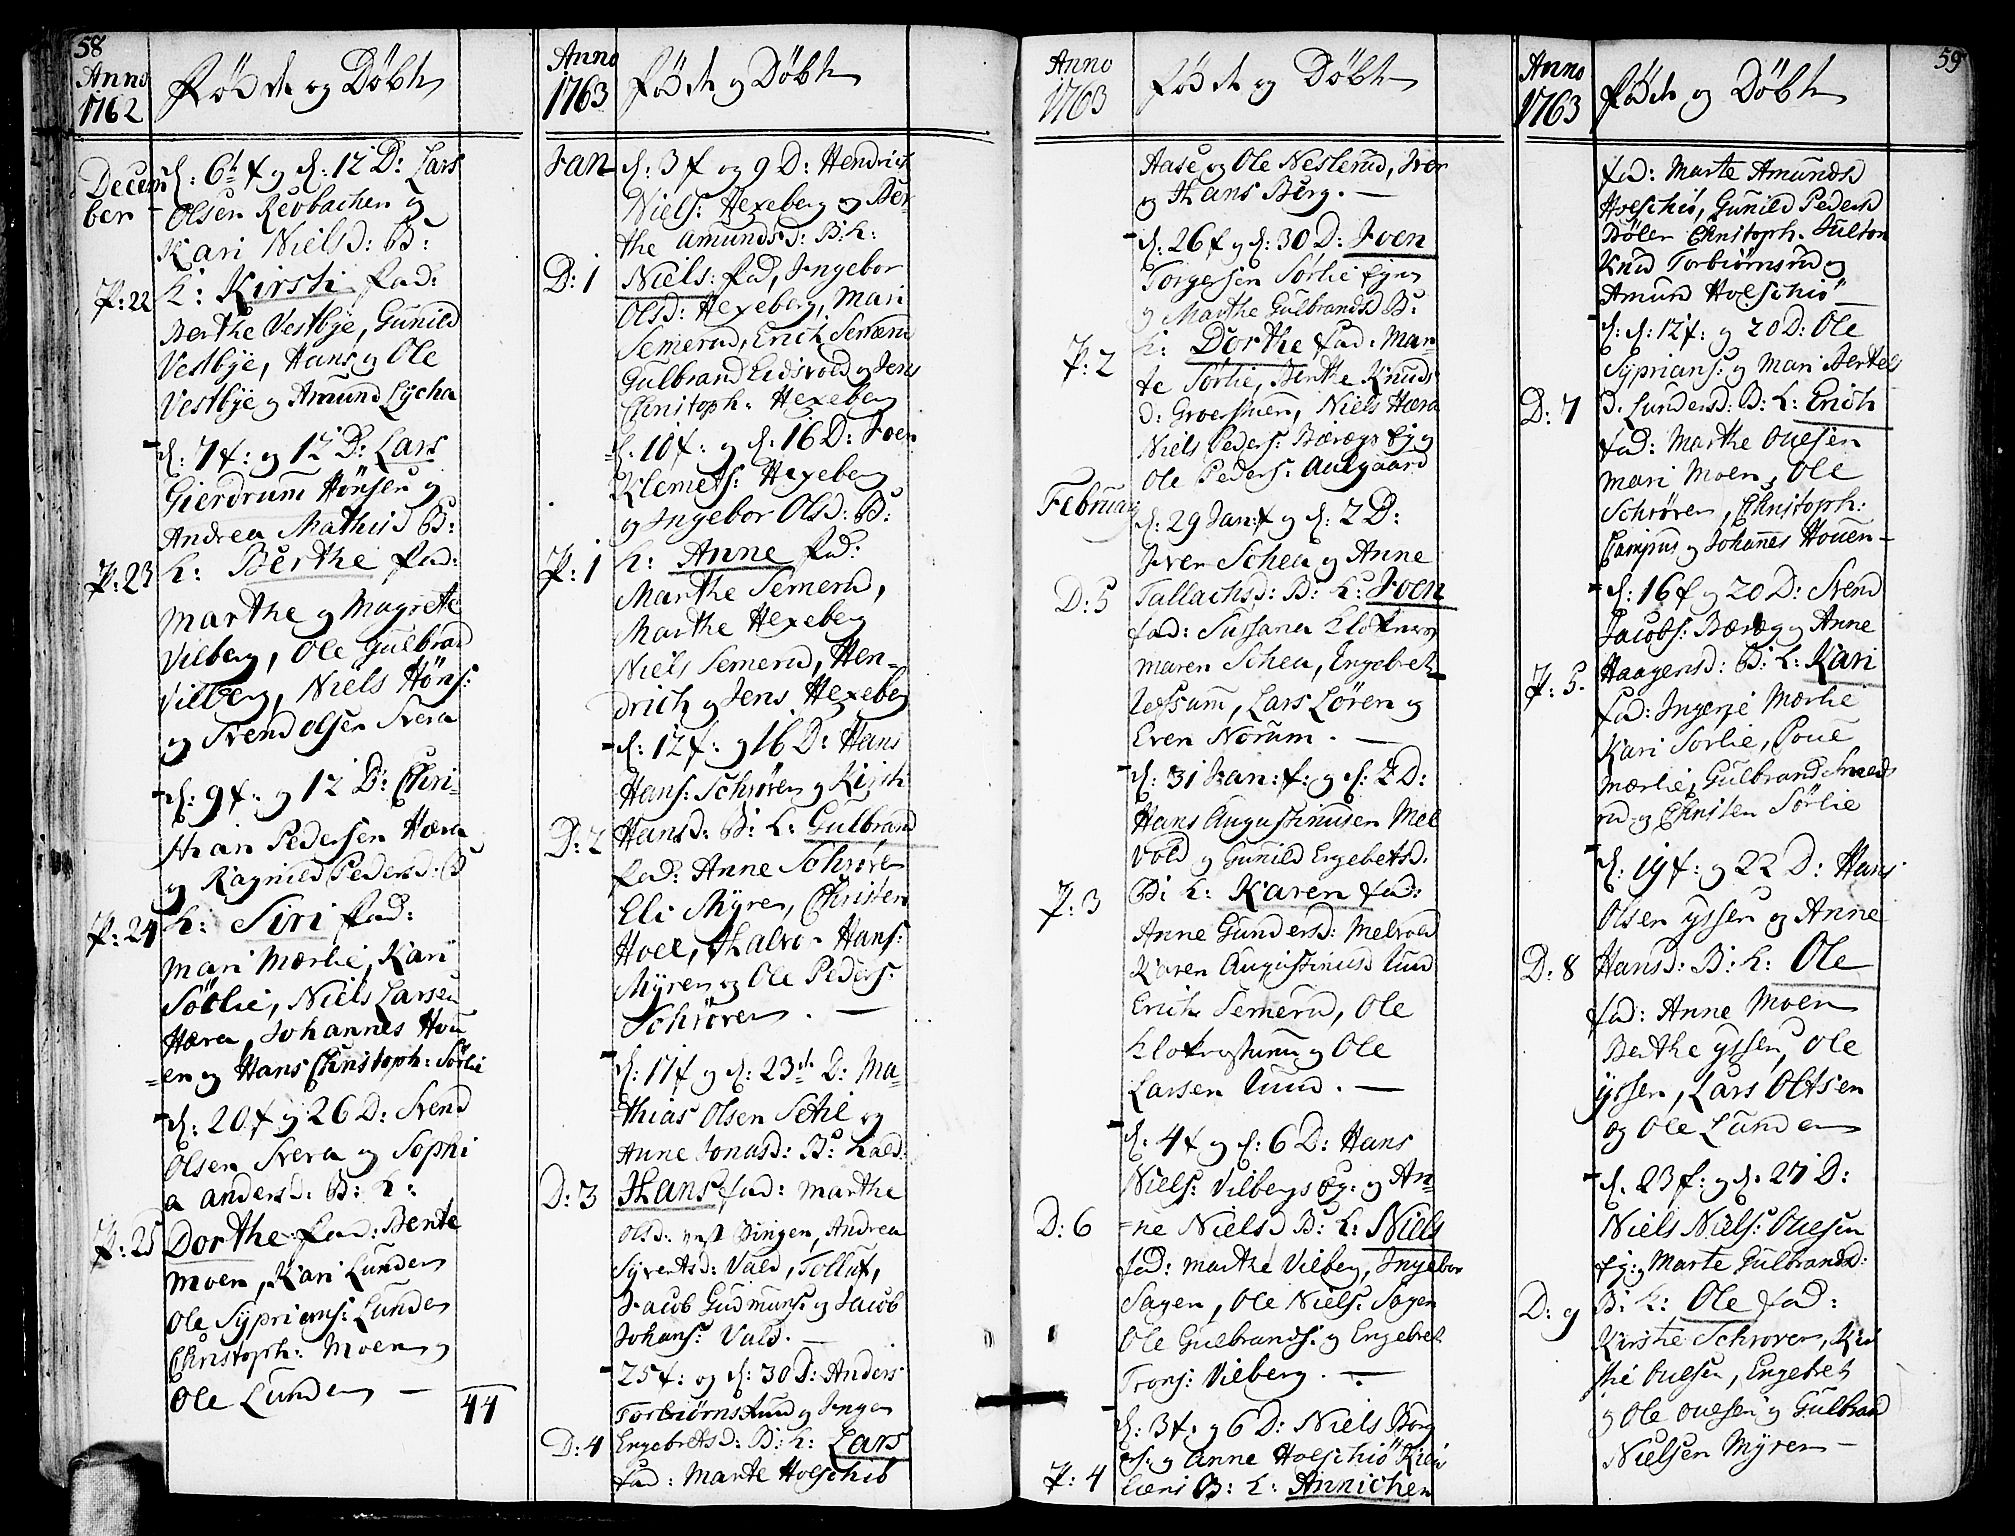 58
Anno
1762
Föde og Döbte
Decem
ber
d: 6t f og d: 12 D: Lars
Olsen Revbachen og
Kari Nielsd: B:
P: 22
k: Kirsti fad:
Berthe Vestbye, Gunild
Vestbye, Hans og Ole
Vestbye og Amund Lycha
d: 7 f: og 12 D: Lars
Gierdrum Hönsen og
Andrea Mathisd B:
P: 23
k: Berthe fad:
Marthe og Magrete
Vilberg, Ole Gulbrand
Vilberg, Niels Höns:
og Svend Olsen Svera
d: 9 f: og 12 D: Chri-
stian Pedersen Hæra
og Ragnild Pedersd: B
P: 24
k: Siri fad:
Mari Mærlie, Kari
Sörlie, Niels Larsen
Hæra, Johannes Hou
=en og Hans Christoph: Sörlie
d: 20 f og 26 D: Svend
Olsen Svera og Sophi
a andersd: B: k:
P: 25
Dorthe fad: Bente
Moen, Kari Lunden
Ole Syprians: Lunden
Christoph: Moen og
Ole Lunden —
44
Anno
1763
Föde og Döbte
Jan
d: 3 f og 9 D: Hendrich
Niels: Hexeberg og Ber-
the Amundsd: B: k:
D: 1
Niels: fad, Ingebor
Olsd: Hexeberg, Mari
Semerud, Erich Semerud
Gulbrand Eidsvold og Jens
Christoph: Hexeberg
d: 10 f: og d: 16 D: Joen
Klemets: Hexeberg
og Ingebor Olsd: B:
P: 1
k: Anne fad:
Marthe Semerud,
Marthe Hexeberg
Niels Semerud, Hen-
drich og Jens Hexeberg
d: 12 f: og 16 D: Hans
Hans: Schrören og Kirsti
D: 2
Hansd: B: k: Gulbrand
fad: Anne Schrören
Eli Myren, Christen
Hoel, Halvo- Hans:
Myren og Ole Peders:
Schrören. —
d: 17 f og d: 23de D: Ma-
thias Olsen Setie og
Anne Jonasd: B: kald:
D: 3
Hans fad: Marthe
Olsd: Bingen, Andrea
Syvertsd: Vald, Tolluf,
Jacob Gudmuns: og Jacob
Johans: Vald. —
25 f: og d: 30 D: Anders
Torbiörns Lund og Inger
D: 4
Engebretsd: B: k: Lars
fad: Marte Holschiö
Anno
1763
Föde og Döbte
Aase og Ole Neslerud, Iver
og Hans Berg. —
d: 26 f og d: 30 D: Joen
Torgersen Sörlie Eg:
og Marthe Gulbrandsd B:
P: 2
k: Dorthe fad: Mar-
te Sörlie, Berthe Knuds
d: Niels Hæra
Niels Peders: Bæregs Eg og
Ole Peders: Aulgaard
Februarij
d: 29 Jan: f og d: 2 D:
Iver Schea og Anne
D: 5
Tallachsd: B: k: Joen
fad: Sussana
Maren Schea, Engebret
Lars Lören og
Even Norum. —
d: 31 Jan: f: og d: 2 D:
Hans Augustinusen Mel
vold og Gunild Engebetsd:
P: 3
B: k: Karen fad:
Anne Gundersd: Melvold
Karen Augustinusd Lund
Erich Semerud, Ole
og Ole
Larsen Lund. —
d: 4 f og d: 6 D: Hans
Niels: Vilbergs Eg: og An-
D: 6
=ne Nielsd B: k: Niels
fad: Marthe Vilberg, Ingebor
Sagen, Ole Niels: Sagen
Ole Gulbrands: og Engebret
Trons: Vilberg. —
d: 3 f: og 6 D: Niels Borg
og Anne Holschiö
P: 4
B: k: Annichen
59
Anno
1763
Föde og Döbte
fad: Marte Amundsd
Holschiö, Gunild Pedersd
Dölen Christoph. Julton
Knud Torbiörnsrud og
Amund Holschiö —
d: d: 12 f: og 20 D: Ole
Syprians: og Mari Bertels
D: 7
d. Lundersd: B: k: Erich
fad: Marthe Ouesen
Mari Moen, Ole
Schrören, Christoph:
Campus og Johannes Houen —
d: 16 f og 20 D: Svend
Jacobs: Bæreg og Anne
P: 5.
Haagensd: B: k: Kari
fad: Ingerje Mærlie
Kari Sorlie, Poul
Mærlie, Gulbrand Smeds
rud og Christen Sörlie
d: 19 f: og 22 D: Hans
Olsen Yssen og Anne
D: 8
Hansd: B: k: Ole
fad: Anne Moen
Berthe Yssen, Ole
Yssen, Lars Oltsen
og Ole Lunden
d. 23 f: og d. 27 D:
Niels Niels: Ouesen
Eg: og Marte Gulbrandsd:
D: 9
B: k: Ole fad:
Kirstie Schroren, Kir
stie Ouesen, Engebret
og Ole Ouesen og Gulbrand
Nielsen Myren —